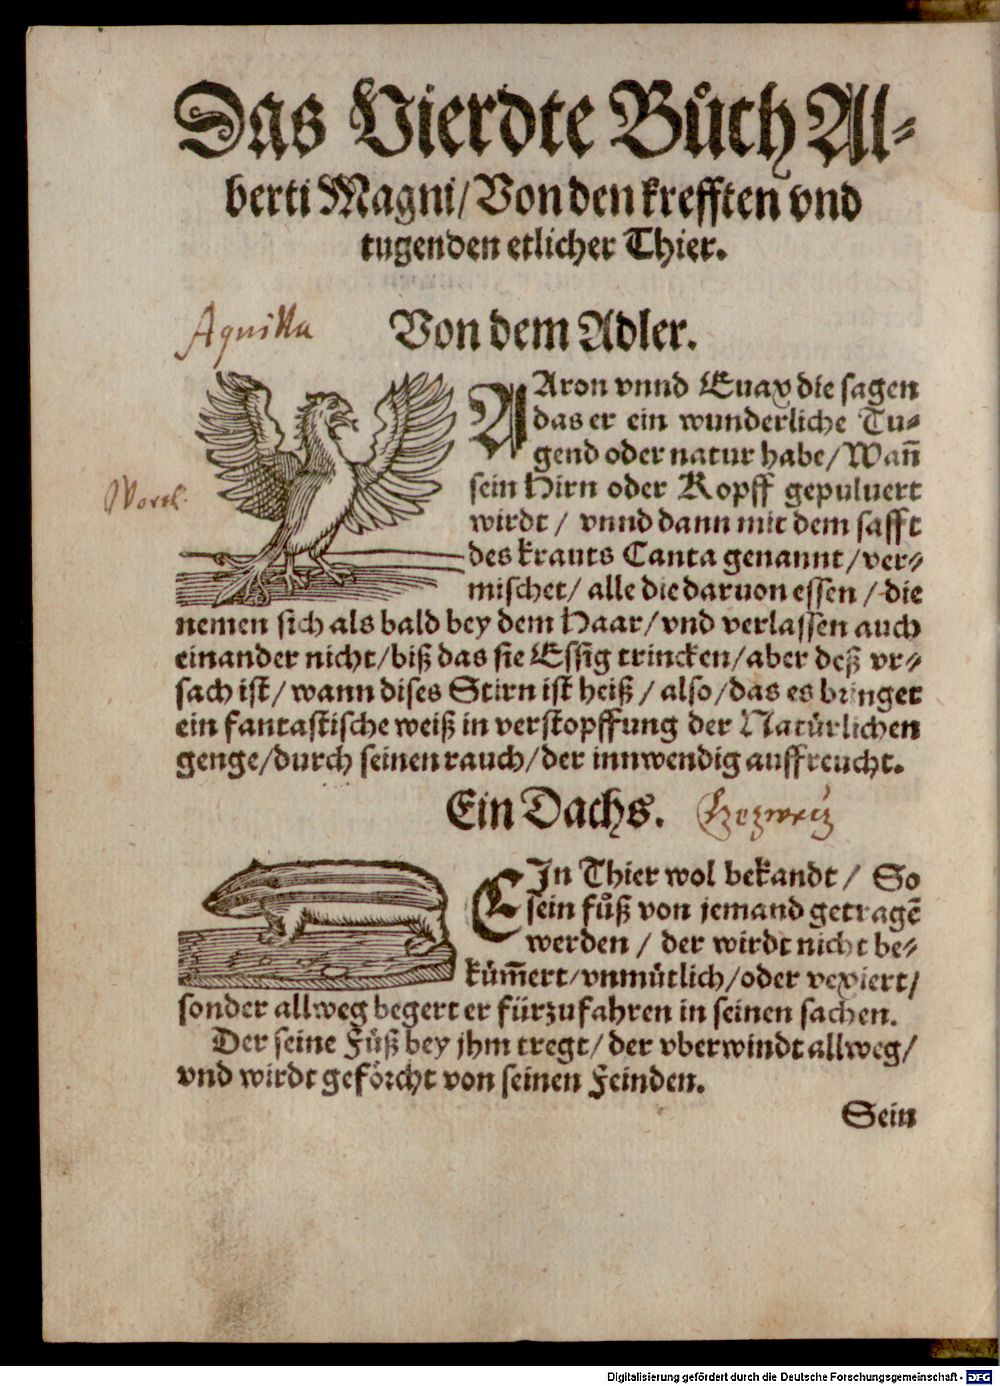 Das Vierdte Bůch Al-
berti Magni/Von den krefften vnd
tugenden etlicher Thier.
Aquilla
Von dem Adler.
AAron vnnd Euax die sagen
das er ein wunderliche Tu-
gend oder natur habe/Wañ
sein Hirn oder Kopff gepuluert
wirdt / vnnd dann mit dem safft
des krauts Canta genannt/ver-
mischet/ alle die daruon essen / die
nemen sich als bald bey dem Haar/vnd verlassen auch
einander nicht/biß das sie Essig trincken/aber deß vr-
sach ist/wann dises Stirn ist heiß / also/das es bringet
ein fantastische weiß in verstopffung der Natürlichen
genge/durch seinen rauch/der innwendig auffreucht.
Ein Dachs.
EIn Thier wol bekandt / So
sein fůß von jemand getragē
werden / der wirdt nicht be-
küm̄ert/vnmůtlich/oder vexiert/
sonder allweg begert er fürzufahren in seinen sachen.
Der seine Fůß bey jhm tregt/der vberwindt allweg/
vnd wirdt geförcht von seinen Feinden.
Sein
Digitalisierung gefördert durch die Deutsche Forschungsgemeinschaft - DFG